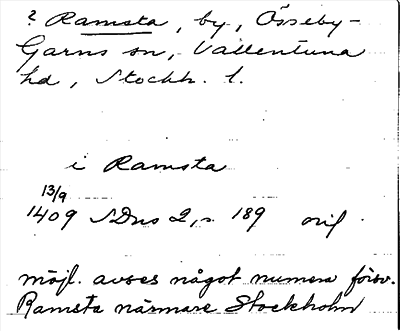 ? Ramsta, by, Össeby-
Garns sn, Vallentuna
hd, Stockh. l.
i Ramsta
13/9
1409 SDns 2, s 189 orig.
möjl. avses något numera försv.
Ramsta närmare Stockholm